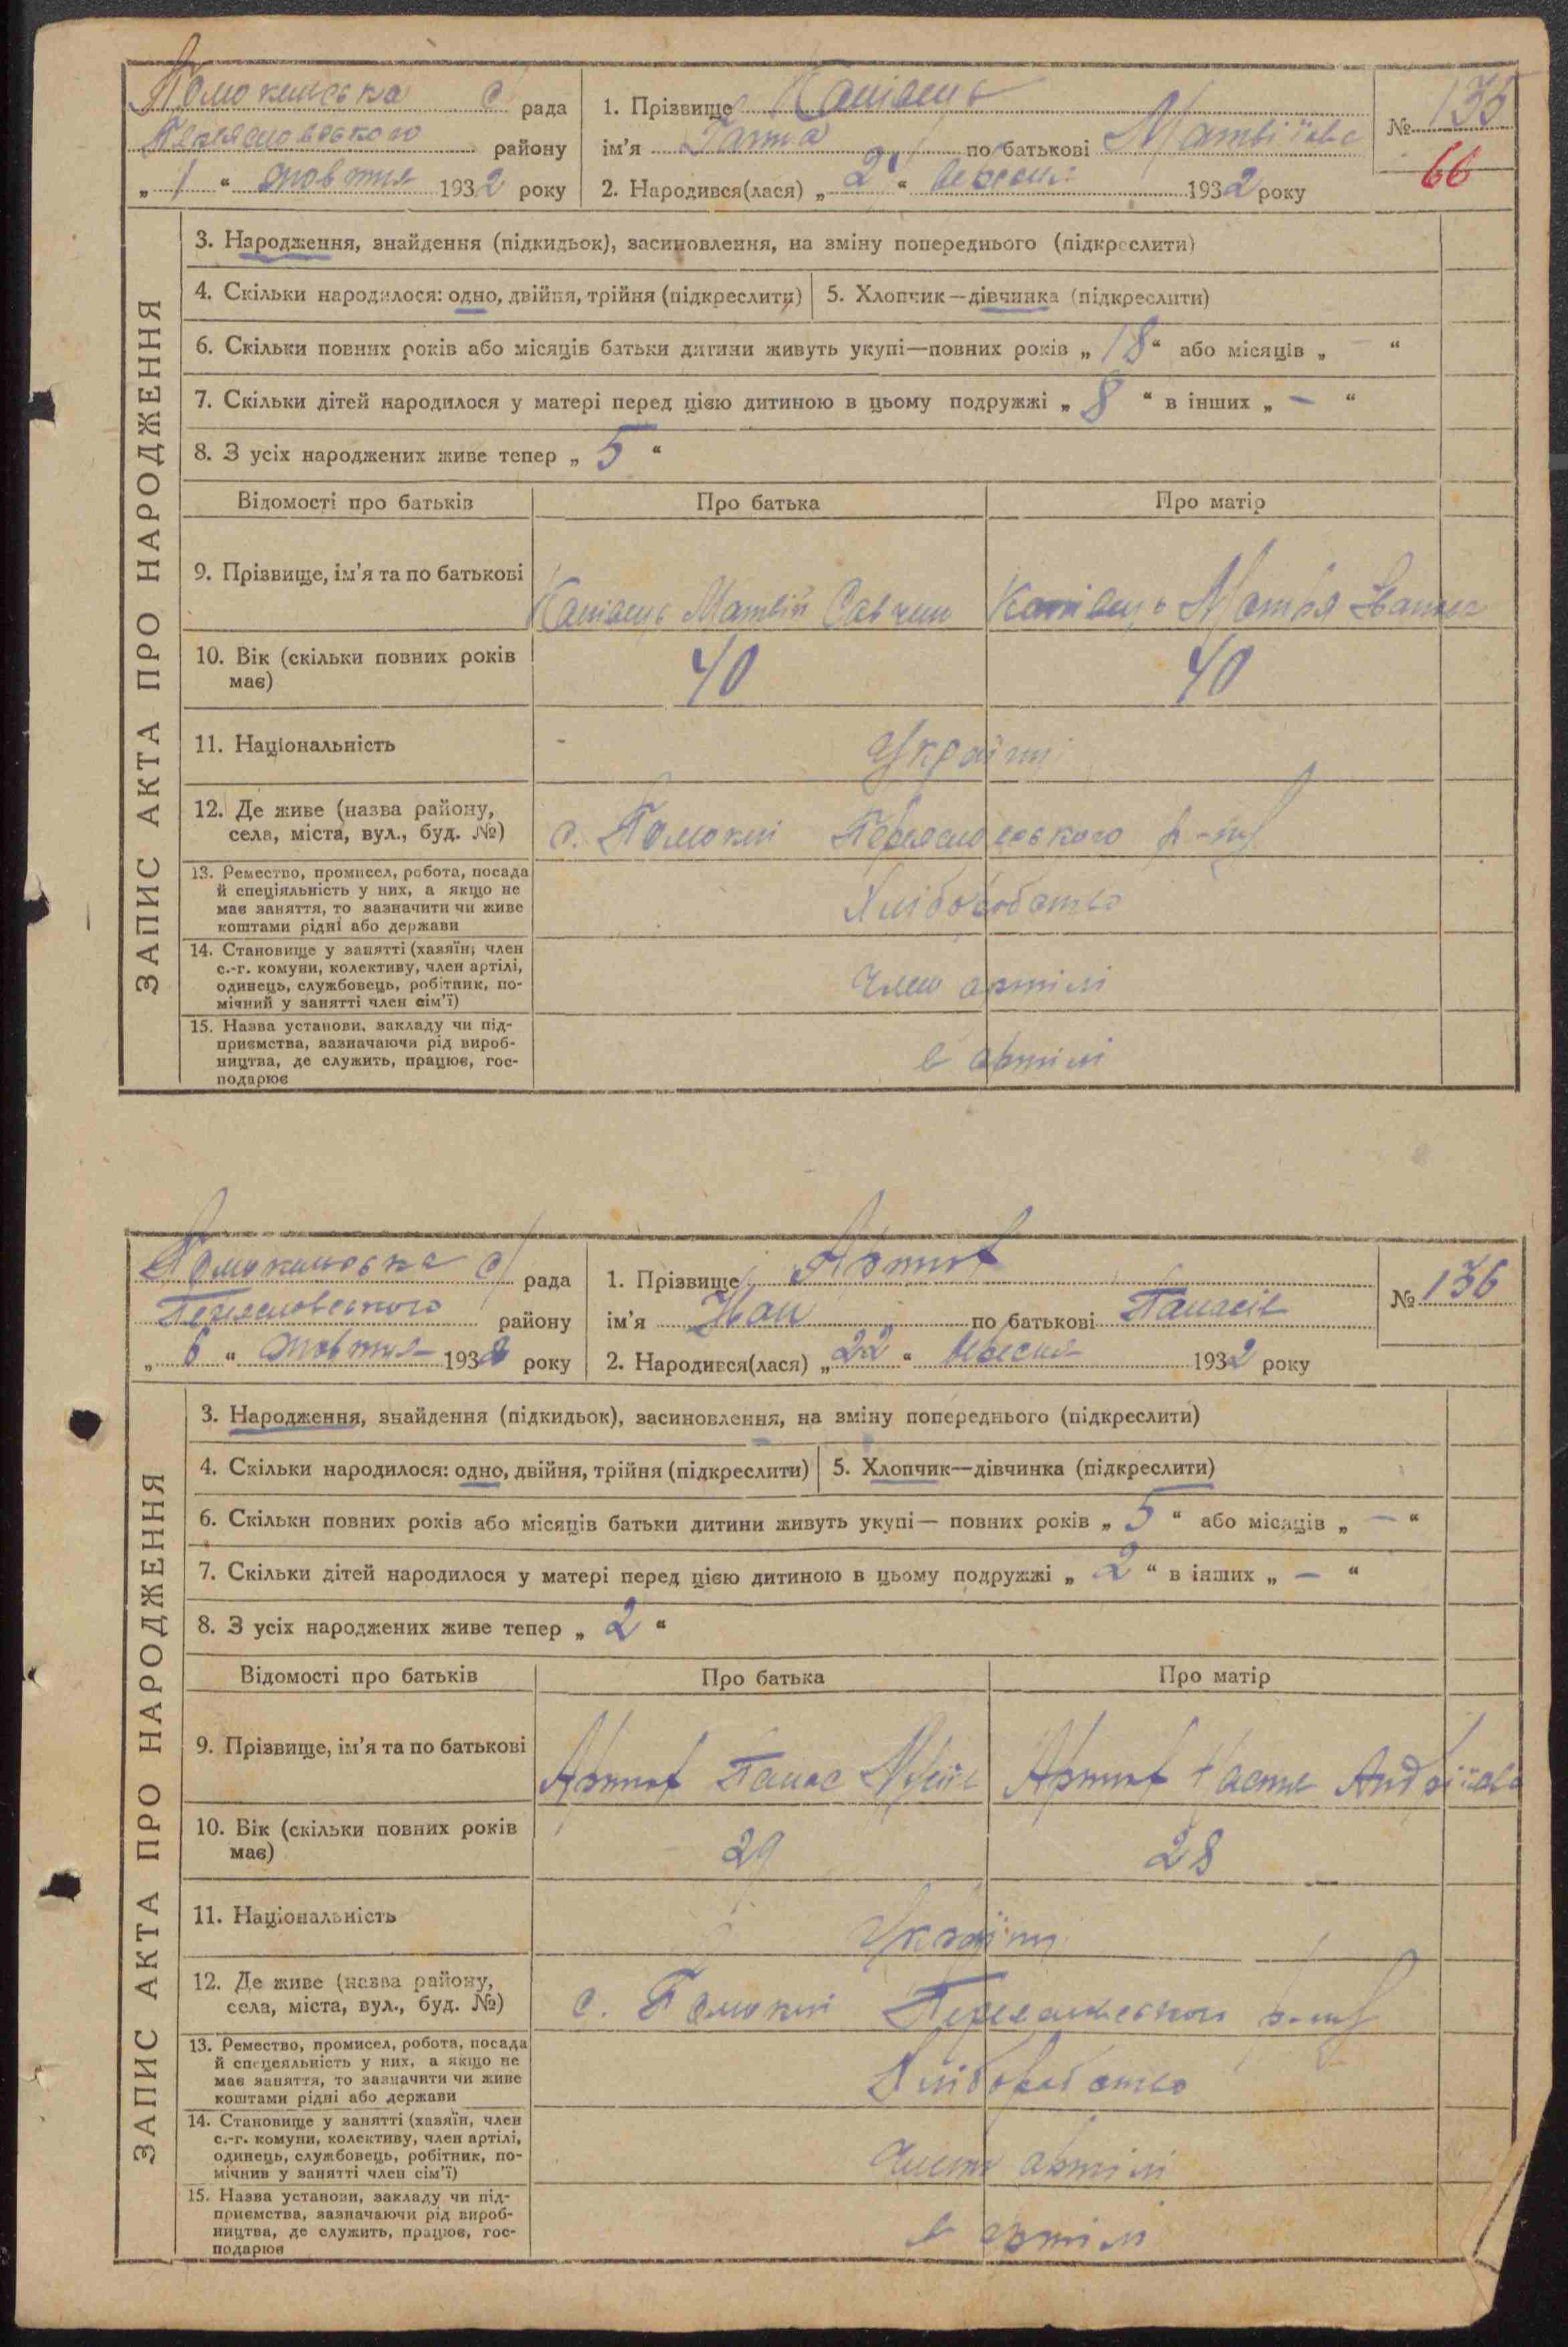 Помоклиська с/рада
Переяславського району
„ 1 “ жовтня 1932 року
1. Прізвище
ім'я Ганна по батькові Матвіївна
2. Народився(лася) „ 2 “ вересня 1932 року
№ 135
66
ЗАПИС АКТА ПРО НАРОДЖЕННЯ
3. Народження, знайдення (підкидьок), засиновлення, на зміну попереднього (підкреслити)
4. Скільки народилося: одно, двійня, трійня (підкреслити)
5. Хлопчик—дівчинка (підкреслити)
6. Скільки повних років або місяців батьки дитини живуть укупі—повних років „ 18 “ або місяців „ — “
7. Скільки дітей народилося у матері перед цією дитиною в цьому подружжі „ 8 “ в інших „ — “
8. З усіх народжених живе тепер „ 5 “
Відомості про батьків Про батька Про матір
9. Прізвище, ім'я та по батькові
Матвій
10. Вік (скільки повних років має)
40 40
11. Національність
Україн
12. Де живе (назва району, села, міста, вул., буд. №)
с. Помоклі Переяславського р-ну
13. Ремество, промисел, робота, посада
й спеціяльність у них, а якщо не
має заняття, то зазначити чи живе
коштами рідні або держави
Хліборобство
14. Становище у занятті (хазяїн, член
с.-г. комуни, колективу, член артілі,
одинець, службовець, робітник, по-
мічний у занятті член сім'ї)
Член артілі
15. Назва установи, закладу чи під-
приємства, зазначаючи рід вироб-
ництва, де служить, працює, гос-
подарює
в артілі
Помоклиська с/рада
Переяславського району
„ 6 “ жовтня 1932 року
1. Прізвище
ім'я Іван по батькові Панасів
2. Народився(лася) „ 22 “ вересня 1932 року
№ 136
ЗАПИС АКТА ПРО НАРОДЖЕННЯ
3. Народження, знайдення (підкидьок), засиновлення, на зміну попереднього (підкреслити)
4. Скільки народилося: одно, двійня, трійня (підкреслити)
5. Хлопчик—дівчинка (підкреслити)
6. Скільки повних років або місяців батьки дитини живуть укупі— повних років „ 5 “ або місяців „ — “
7. Скільки дітей народилося у матері перед цією дитиною в цьому подружжі „ 2 “ в інших „ — “
8. З усіх народжених живе тепер „ 2 “
Відомості про батьків Про батька Про матір
9. Прізвище, ім'я та по батькові
Панас
Настя Андріївна
10. Вік (скільки повних років має)
29 28
11. Національність
Україн
12. Де живе (назва району, села, міста, вул., буд. №)
с. Помоклі Переяславського р-ну
13. Ремество, промисел, робота, посада
й спецеяльність у них, а якщо не
має заняття, то зазначити чи живе
коштами рідні або держави
Хліборобство
14. Становище у занятті (хазяїн, член
с.-г. комуни, колективу, член артілі,
одинець, службовець, робітник, по-
мічнив у занятті член сім'ї)
Член артілі
15. Назва установи, закладу чи під-
приємства, зазначаючи рід вироб-
ництва, де служить, працює, гос-
подарює
в артілі